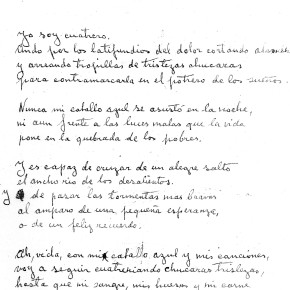 Yo soy cuatrero.
Ando por los latifundios del dolor cortando
y arreando tropillas de tristezas chucaras
para contramarcarla en el potrero de los sueños.
Nunca mi caballo azul se asustó en la noche,
ni aun frente a las luces malas que la vida
pone en la quebrada de los pobres.
Y es capaz de cruzar de un alegre salto
el ancho río de los desalientos.
y de pasar las tormentas mas bravas
al amparo de una pequeña esperanza,
o de un feliz recuerdo.
Ah, vida, con mi caballo azul y mis canciones,
voy a seguir cuatrereando chucaras tristezas,
hasta que mi sangre, mis huesos y mi carne